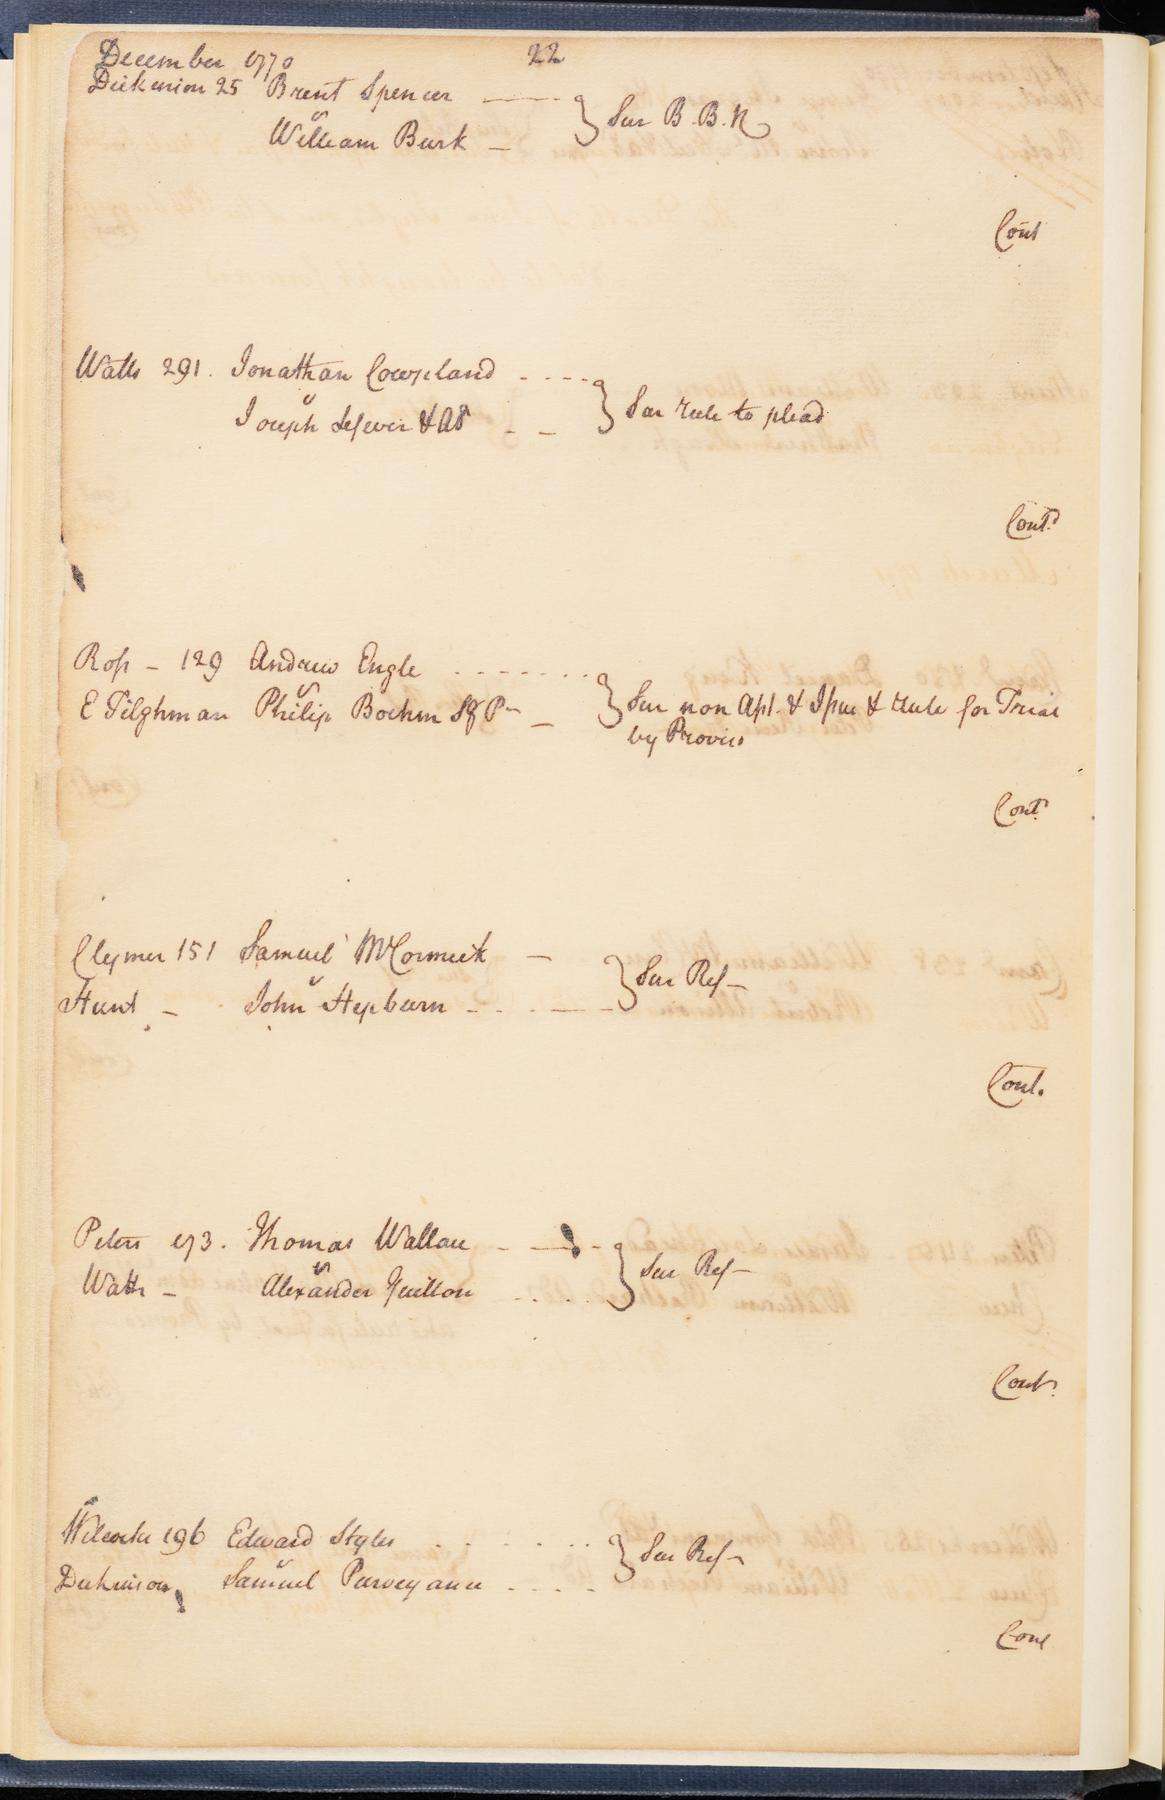 December 1770 22
Dickinson 25 Brent Spencer
v
William Burk
Sur B. B. R
Cont
Watts 291. Jonathan Cowpland
v
Joseph Lefever & Al
Sur rule to plead
Cont
Ross - 129 Andrew Engle
v
E Tilghman Philip Boehm
Sur non Apl. & Issue & rule for Trial
by Proviso
Cont
Clymer 151 Samuel McCormick
v
Hunt - John Hepburn
Sur Ref -
Cont.
Peters 173. Thomas Wallace
v
Watts - Alexander
Sur Ref -
Cont.
Wilcocks 196 Edward Styles
v
Dickinson Samuel Purveyance
Sur Ref -
Cont